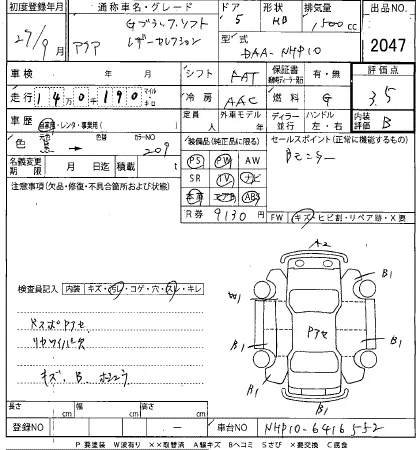 初度登録年月 通称車名・グレード ドア 形状 排気量 出品NO.
27/9月 アクア Gブラックソフト レザーセレクション 5 HB 1,500cc 2047
型式 DAA-NHP10
車検 年 月 シフト FAT 保証書 有・無 評価点
走行 14万0千190 マイル キロ 冷房 AAC 燃料 G 3.5
車歴 自家用・レンタ・事業用( ) 定員 人 外車モデル 年 ディーラー 並行 ハンドル 左・右 内装評価 B
色 元色 黒 → 色替 カラーNO 209
装備品(純正品に限る) セールスポイント(正常に機能するもの)
名義変更期限 月 日迄 積載 t
PS PW AW Bモニター
SR TV ナビ
本革 エアB ABS
R券 9130 円
FW キズ・ヒビ割・リペア跡・X要
注意事項(欠品・修復・不具合箇所および状態)
検査員記入 内装 キズ・汚レ・コゲ・穴・スレ・キレ
リヤワイパー欠
キズ、B、
A2
B1
W1
B1
B1
B1
B1
B1
長さ cm 幅 cm 高さ cm
登録NO - 車台NO NHP10-6416552
P要塗装 W波有り ××取替済 A線キズ Bヘコミ Sさび ×要交換 C腐食